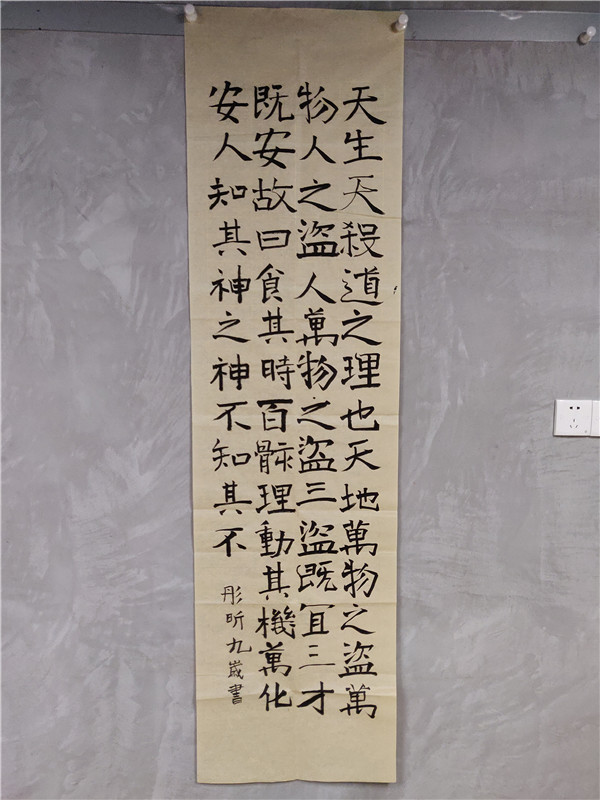 天生天殺道之理也天地萬物之盜萬
物人之盜人萬物之盜三盜既冝三才
既安故曰食其時百骸理動其機萬化
安人知其神之神不知其不
彤昕九嵗書